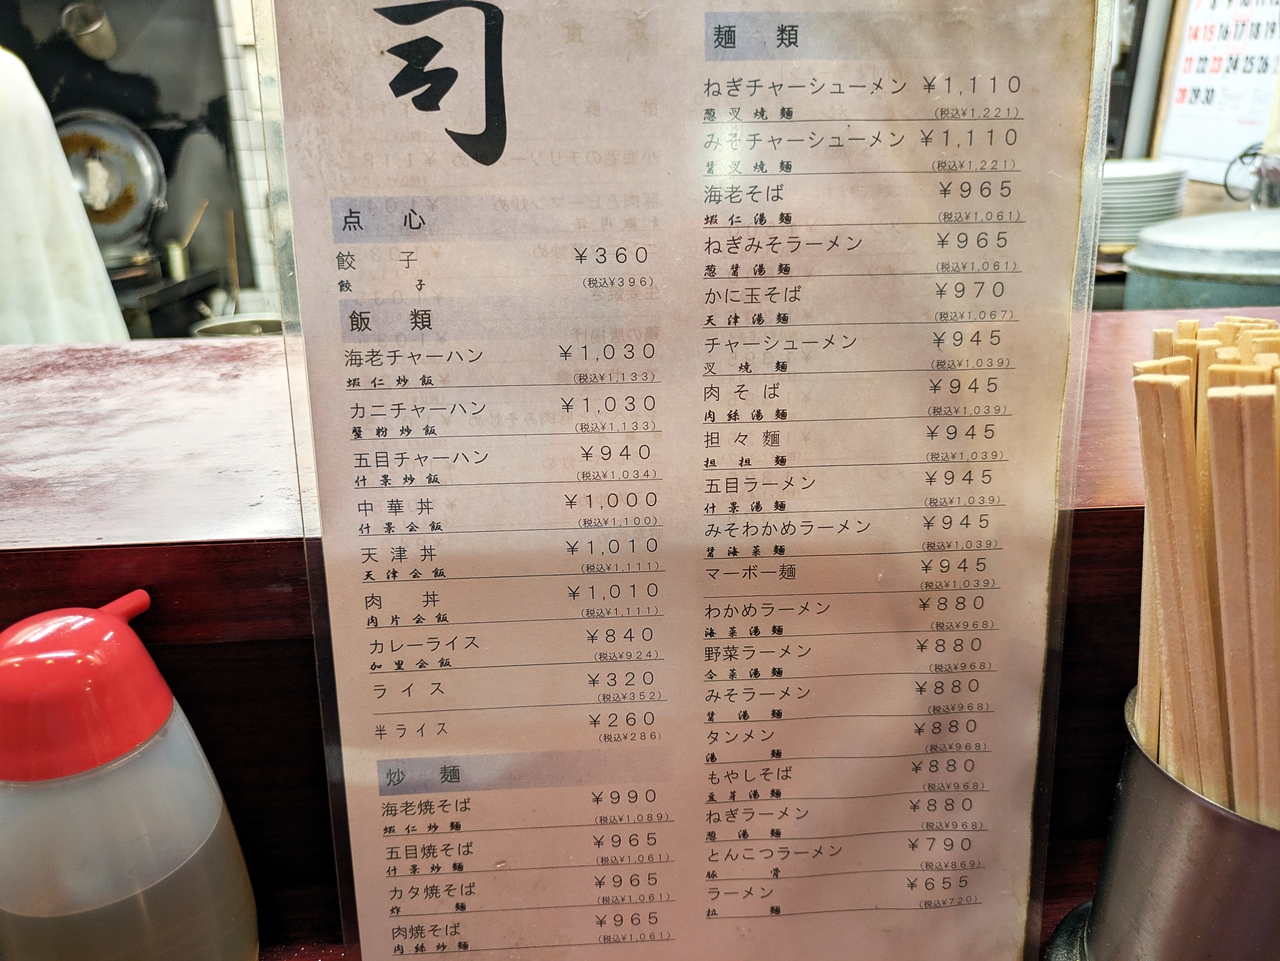 司
点心
餃子 ¥360
餃子 (税込¥396)
飯類
海老チャーハン ¥1,030
蝦仁炒飯 (税込¥1,133)
カニチャーハン ¥1,030
蟹粉炒飯 (税込¥1,133)
五目チャーハン ¥940
什景炒飯 (税込¥1,034)
中華丼 ¥1,000
什景会飯 (税込¥1,100)
天津丼 ¥1,010
天津会飯 (税込¥1,111)
肉丼 ¥1,010
肉片会飯 (税込¥1,111)
カレーライス ¥840
加里会飯 (税込¥924)
ライス ¥320
(税込¥352)
半ライス ¥260
(税込¥286)
炒麺
海老焼そば ¥990
蝦仁炒麺 (税込¥1,089)
五目焼そば ¥965
什景炒麺 (税込¥1,061)
カタ焼そば ¥965
炸麺 (税込¥1,061)
肉焼そば ¥965
肉絲炒麺 (税込¥1,061)
麺類
ねぎチャーシューメン ¥1,110
葱叉焼麺 (税込¥1,221)
みそチャーシューメン ¥1,110
醤叉焼麺 (税込¥1,221)
海老そば ¥965
蝦仁湯麺 (税込¥1,061)
ねぎみそラーメン ¥965
葱醤湯麺 (税込¥1,061)
かに玉そば ¥970
天津湯麺 (税込¥1,067)
チャーシューメン ¥945
叉焼麺 (税込¥1,039)
肉そば ¥945
肉絲湯麺 (税込¥1,039)
担々麺 ¥945
担担麺 (税込¥1,039)
五目ラーメン ¥945
什景湯麺 (税込¥1,039)
みそわかめラーメン ¥945
醤海菜麺 (税込¥1,039)
マーボー麺 ¥945
(税込¥1,039)
わかめラーメン ¥880
海菜湯麺 (税込¥968)
野菜ラーメン ¥880
今菜湯麺 (税込¥968)
みそラーメン ¥880
醤湯麺 (税込¥968)
タンメン ¥880
湯麺 (税込¥968)
もやしそば ¥880
豆芽湯麺 (税込¥968)
ねぎラーメン ¥880
葱湯麺 (税込¥968)
とんこつラーメン ¥790
豚骨 (税込¥869)
ラーメン ¥655
拉麺 (税込¥720)
14 15 16 17 18 19
21 22 23 24 25 26
28 29 30